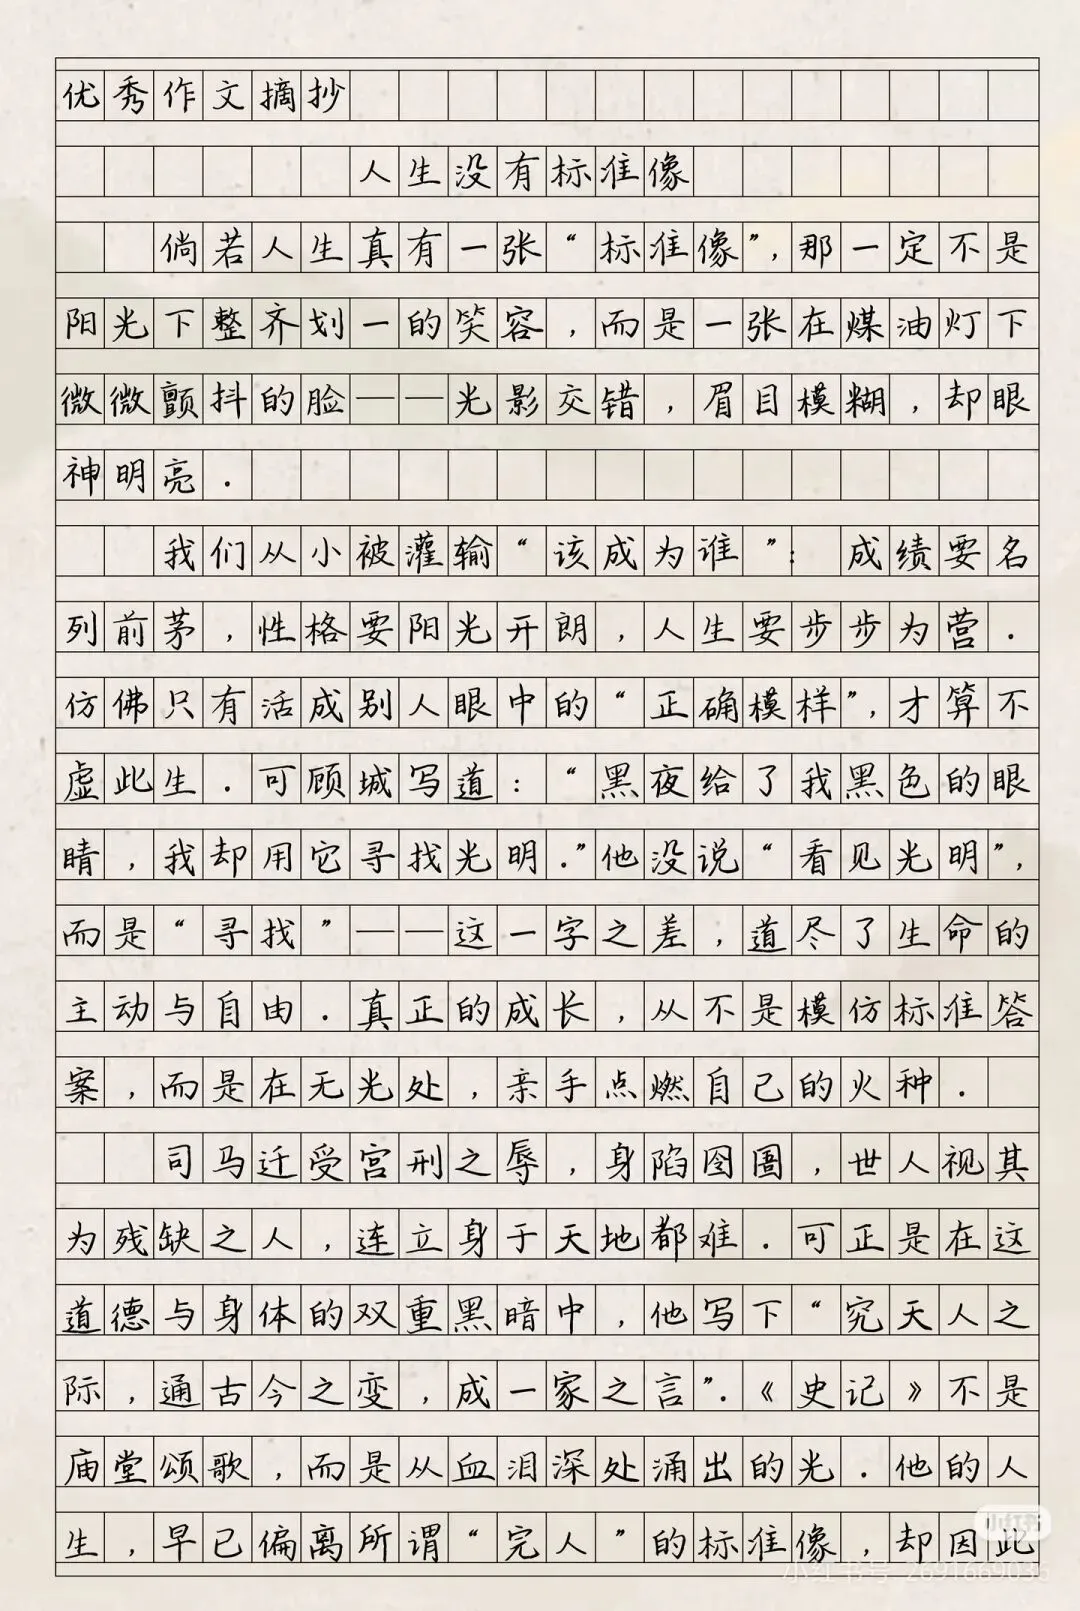 优秀作文摘抄
人生没有标准像
倘若人生真有一张“标准像”，那一定不是
阳光下整齐划一的笑容，而是一张在煤油灯下
微微颤抖的脸——光影交错，眉目模糊，却眼
神明亮．
我们从小被灌输“该成为谁”：成绩要名
列前茅，性格要阳光开朗，人生要步步为营．
仿佛只有活成别人眼中的“正确模样”，才算不
虚此生．可顾城写道：“黑夜给了我黑色的眼
睛，我却用它寻找光明．”他没说“看见光明”，
而是“寻找”——这一字之差，道尽了生命的
主动与自由．真正的成长，从不是模仿标准答
案，而是在无光处，亲手点燃自己的火种．
司马迁受宫刑之辱，身陷囹圄，世人视其
为残缺之人，连立身于天地都难．可正是在这
道德与身体的双重黑暗中，他写下“究天人之
际，通古今之变，成一家之言”．《史记》不是
庙堂颂歌，而是从血泪深处涌出的光．他的人
生，早已偏离所谓“完人”的标准像，却因此
小红书
小红书号 2691669035